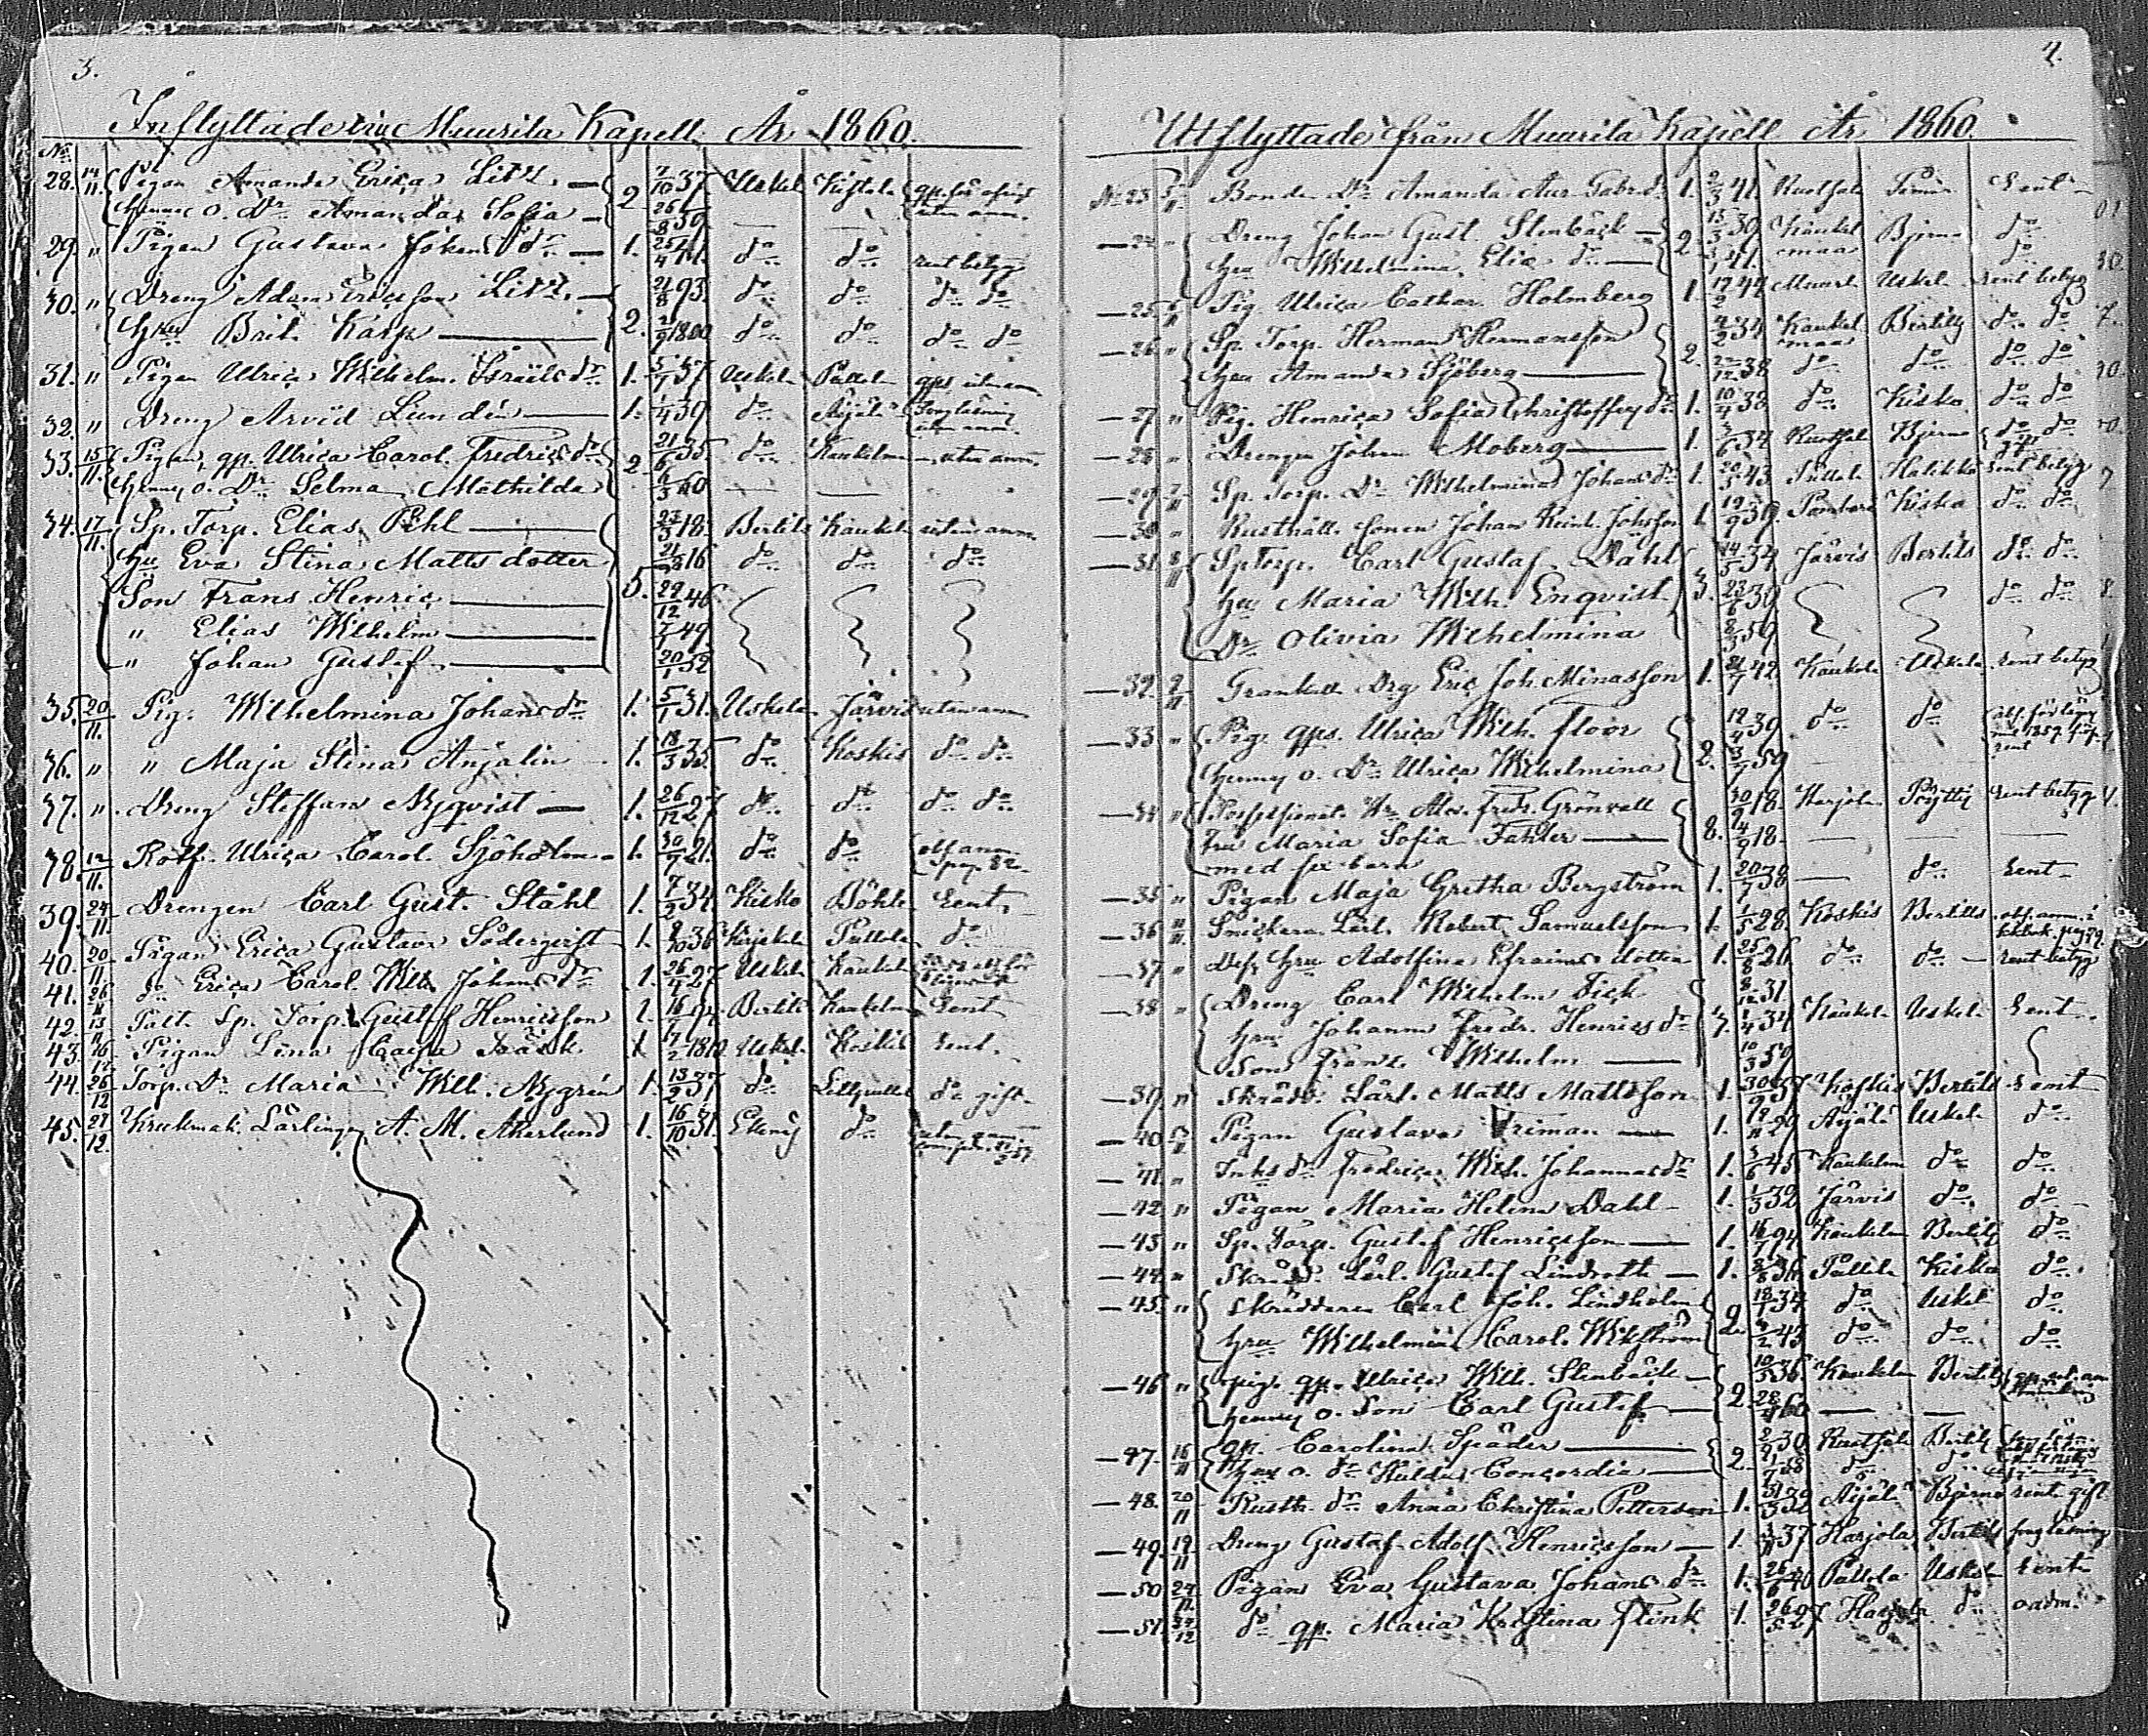 3.
Inflyttade till Muurila Kapell År 1860.
No.
28. 14/11. Pigan Amanda Erica Litz 2 7/10 37 Uskel
hennes o. Dr Amanda Sofia 26/8 59 — —
29. " Pigan Gustava Johans dr 1. 25/4 41. do do rent betyg
30. " Dreng Adam Ericsson Litz 2. 21/8 93. do do do do
hru Brit. Karin 1800 do do do do
31. " Pigan Ulrica Wilhelm. Israels dr 1. 5/1 37 Uskela Pullola
32. " Dreng Arvid Lundén 1. 1/4 39 do
33. 15/11. Pigan, qp. Ulrica Carol. Fredrics dr 2 21/6 35 do Kaukelmaa utan anm.
hennes o. Dr Selma Mathilda 6/3 60 — —
34. 17/11. Sp. Torp. Elias Pihl 5. 23/3 18. Bertils Kaukel utan anm.
hu Eva Stina Matts dotter 21/3 16 do do do
Son Frans Henric 29/12 46
" Elias Wilhelm 7/1 49
" Johan Gustaf 20/1 52
35. 20/11. Pig. Wilhelmina Johans dr 1. 5/1 31. Uskela Järvis utan anm
36. " " Maja Stina Anjalin 1. 18/3 35. do Koskis do do
37. " Dreng Steffan Nyqvist 1. 26/12 27 do do do do
38. 12/11. Rotf. Ulrica Carol. Sjöholm 1. 30/9 21. do do
39. 24/11 Drengen Carl Gust. Ståhl 1. 7/2 34. Kisko Böhle Rent
40. 20/11 Pigan Erica Gustava Södergvist 1. 8/10 36 Pullola do
41. 26/11 do Erica Carol. Wilh. Johans dr 1. 26/4 27 Uskela Kaukel
42. 13/11 Sp. Torp. Gustaf Henricsson 1. 16/7 94. Bertils Kaukelm Rent
43. 16/12 Pigan Lena Caisa 1 17/2 1810. Uskel. Koskis Rent.
44. 26/12 Torp. Dr Maria Wilh. Nygrén 1. 13/2 37 do do gift.
45. 27/12. Krukmak. Lärlingen A. M. Åkerlund 1. 16/10 31. Ekenäs do
4.
Utflyttade från Muurila Kapell År 1860.
No 23 Bonde Dr Amanda Aur. Gabr. dr 1. 2/3 41. Ruotsala Rent
— 24 " Dreng Johan Gust. Stenbäck 2. 15/3 39 Kaukel maa Bjerno do
hru Wilhelmina Elia dr 41. do
— 25 Pig. Ulrica Cathar. Holmberg 1. 17/2 42 Muuril Uskel rent betyg
— 26 " Sp. Torp. Herman Hermansson 2. 4/2 34 Kaukel maa Bertils do do
hru Amanda Sjöberg 22/12 38 do do do do
— 27 " Pig. Henrica Sofia Christoffers dr 1. 10/4 38 do Kisko do do
— 28 " Drengen Johan Moberg 1. 34 Ruotsal Bjerno do do
— 29 Sp. Torp. Dr Wilhelmina Johans dr 1. 20/5 43 Pullola Halikko rent betyg
— 30 " Rusthåll. sonen Johan Reinh. Johsson 1. 19/9 39. Kisko do do
— 31 Sp Torp. Carl Gustaf Dahl 3. 14/5 34 Järvis Bertils do do
hru Maria Wilh. Enqvist 23/6 30 do do
Dr Olivia Wilhelmina 8/3 59
— 32. 9/11 Drg Eric Joh. Minasson 1. 21/7 42 Kaukela Uskela rent betyg
— 33 " Pig. qps. Ulrica Wilh. Floor 2. 12/4 39 do do
hennes o. Dr Ulrica Wilhelmina 3/7 59
— 34 " Alex. Fredr. Grönvall 8. 30/9 18. Harjola Pöytty rent betyg
Fru Maria Sofia Fahler 14/9 18. — —
med sex barn
— 35 " Pigan Maja Gretha Bergström 1. 20/7 38 — do Rent
— 36 11/11 Snickare Lärl. Robert Samuelsson 1. 1/5 28. Koskis Bertils
— 37 " hru Adolfina Efraims dotter 1. 25/8 26 do do rent betyg
— 38 " Dreng Carl Wilhelm Fick 8/12 31
hru Johanna Fredr. Henrics dr 1/4 34 Kaukela Uskela Rent
Son Frans Wilhelm 10/3 59
— 39. " Skrädd. Lärl. Matts Mattsson 1. 30/9 37 Koskis Bertils Rent
— 40 Pigan Gustava Friman 1. 12/11 29 Aijälä Uskela do
— 41. " Inhs dr Fredrica Wilh. Johannas dr 1. 3/6 45 Kaukelm do do
— 42 " Pigan Maria Helena Dahl 1. 1/3 32 Järvis do do
— 43 " Sp. Torp. Gustaf Henricsson 1. 16/7 94 Kaukelm Bertils do
— 44. " Skrädd. Lärl. Gustaf Lindroth 1. 36 Pullola Kisko do
— 45. " Skräddaren Carl Joh. Lindholm 2. 18/1 34 do Uskel do
hru Wilhelmina Carol. Wikström 43 do do do
— 46 " pig. qp. Ulrica Wilh. Stenbäck 2. 10/3 36. Kaukelm Bertils
hennes o. Son Carl Gustaf 28/4 60 — —
— 47. 16/11 qp. Carolina Späder 2. 2/9 30 Ruotsala Bertils
hennes o. dr Hulda Concordia 58 do do
— 48. 20/11 Rusth. dr Anna Christina Petterson 1. 31/3 32 Aijälä Bjerno rent gift
— 49. 19/11 Dreng Gustaf Adolf Henricsson 1. 37 Harjola Bertils
— 50 24/11. Pigan Eva Gustava Johans dr 1. 26/6 40 Pullola Uskela Rent
— 51. do qp. Maria Kristina Flink 1. 26/5 27 Harjola do oadm.